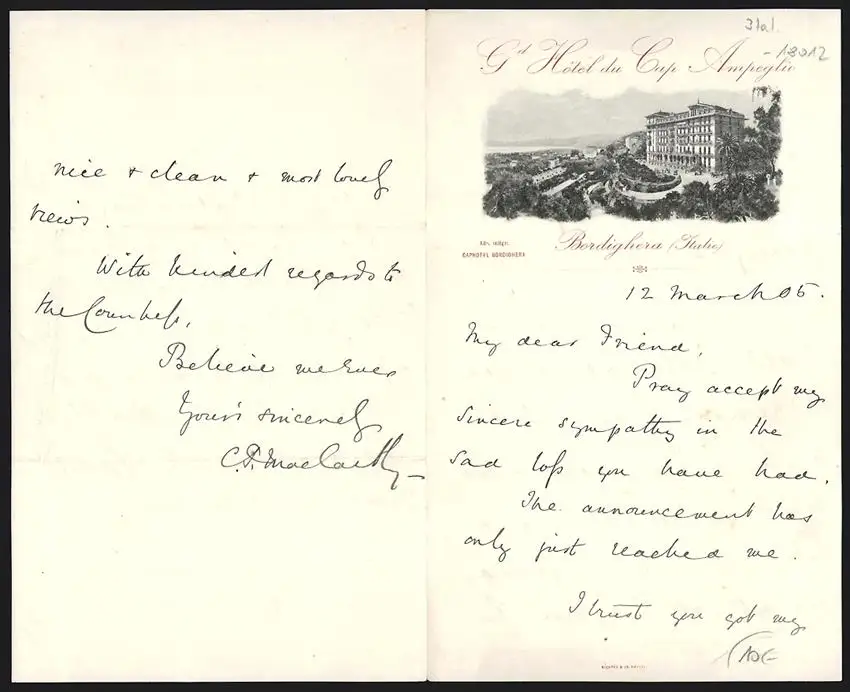 3tal.
-18012
Gd Hôtel du Cap Ampeglio
Adr. télégr.
CAPHOTEL BORDIGHERA
Bordighera (Italie)
12 March 05.
My dear Friend,
Pray accept my
sincere sympathy in the
sad loss you have had.
The announcement has
only just reached me.
I trust you got my
nice + clean + most lovely
views.
With kindest regards to
the Countess,
Believe me Ever
Yours sincerely